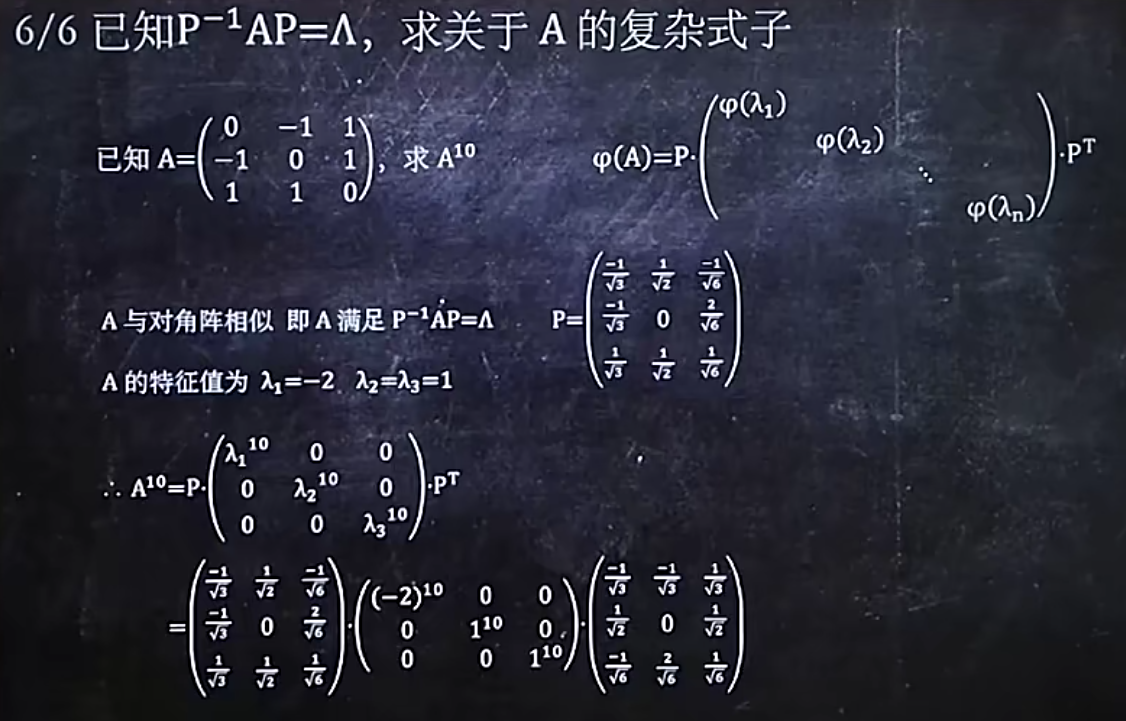 6/6 已知P⁻¹AP=Λ，求关于 A 的复杂式子
已知 A=(0 −1 1; −1 0 1; 1 1 0)，求 A¹⁰
φ(A)=P·(φ(λ₁) φ(λ₂) ⋱ φ(λₙ))·Pᵀ
A 与对角阵相似 即 A 满足 P⁻¹AP=Λ
P=(−1/√3 1/√2 −1/√6; −1/√3 0 2/√6; 1/√3 1/√2 1/√6)
A 的特征值为 λ₁=−2 λ₂=λ₃=1
∴ A¹⁰=P·(λ₁¹⁰ 0 0; 0 λ₂¹⁰ 0; 0 0 λ₃¹⁰)·Pᵀ
=(−1/√3 1/√2 −1/√6; −1/√3 0 2/√6; 1/√3 1/√2 1/√6)·((−2)¹⁰ 0 0; 0 1¹⁰ 0; 0 0 1¹⁰)·(−1/√3 −1/√3 1/√3; 1/√2 0 1/√2; −1/√6 2/√6 1/√6)